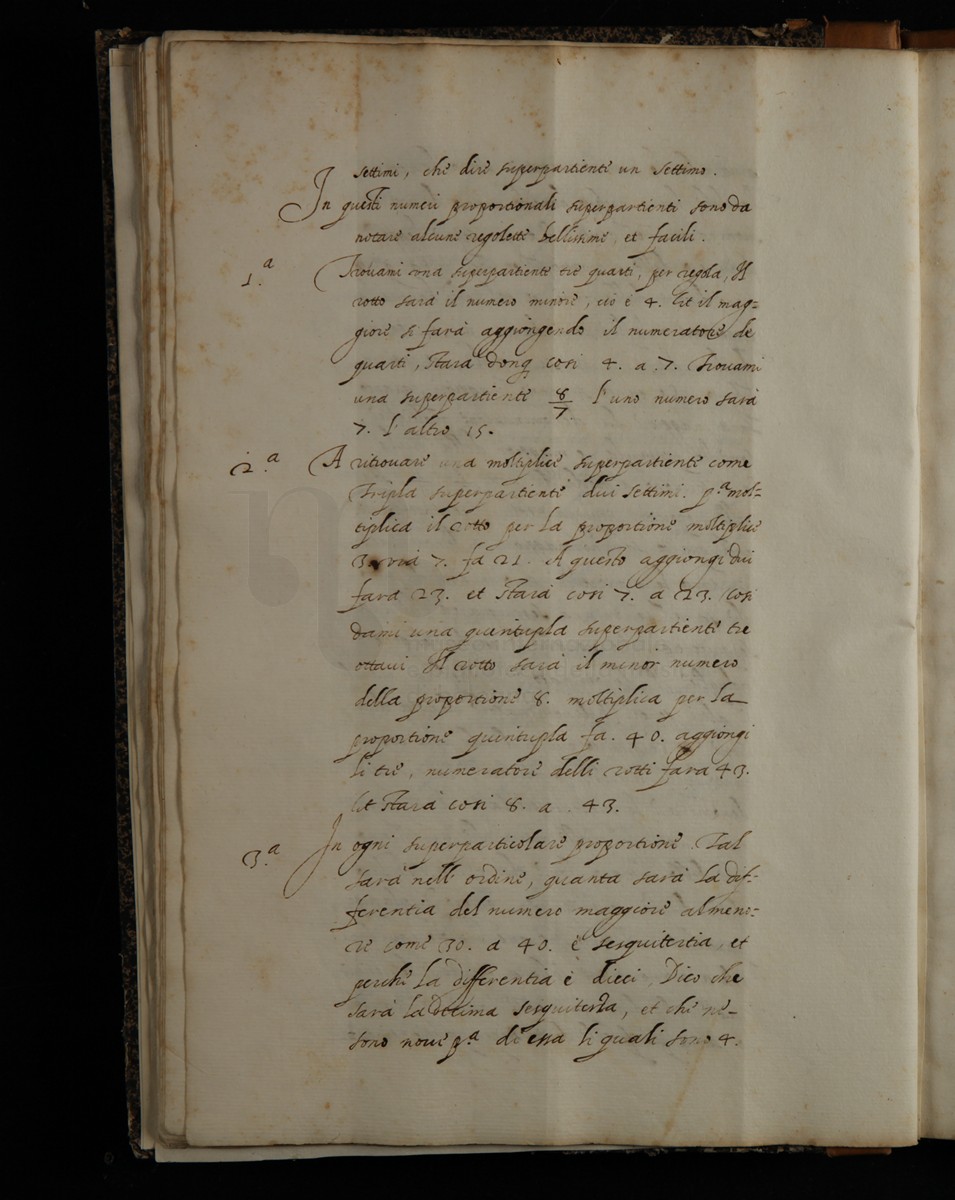 settimi, che dire superpartiente un settimo.
In questi numeri proportionali superpartienti sono da
notare alcune regolette bellissime et facili.
1.a Trovami una superpartiente tre quarti, per regola, Il
rotto sarà il numero minore, ciò è 4. Et il mag=
giore si farà aggiongendo il numeratore de
quarti, starà donq cosi 4. a .7. Trovami
una superpartiente 8/7. l'uno numero sarà
7. l'altro 15.
2.a A ritrovare una moltiplice superpartiente come
Tripla superpartiente dui settimi. p.a mol=
tiplica il rotto per la proportione moltiplice
3. via 7. fa 21. A questo aggiongi dui
fara 23. et starà cosi 7. a 23. Cosi
dami una quintupla superpartiente tre
ottavi Il rotto sarà il minor numero
della proportione 8. moltiplica per la
proportione quintupla fa. 40. aggiongi
li tre, numeratore delli rotti fara 43.
Et starà cosi 8. a . 43.
3.a In ogni superparticolare proportione. Tal
sarà nell' ordine, quanta sarà la dif=
ferentia del numero maggiore al meno=
re come 30. a 40. è sesquitertia, et
perche la differentia è dieci, Dico che
sarà la decima sesquitertia, et che ne=
sono nove p.a di essa li quali sono 4.